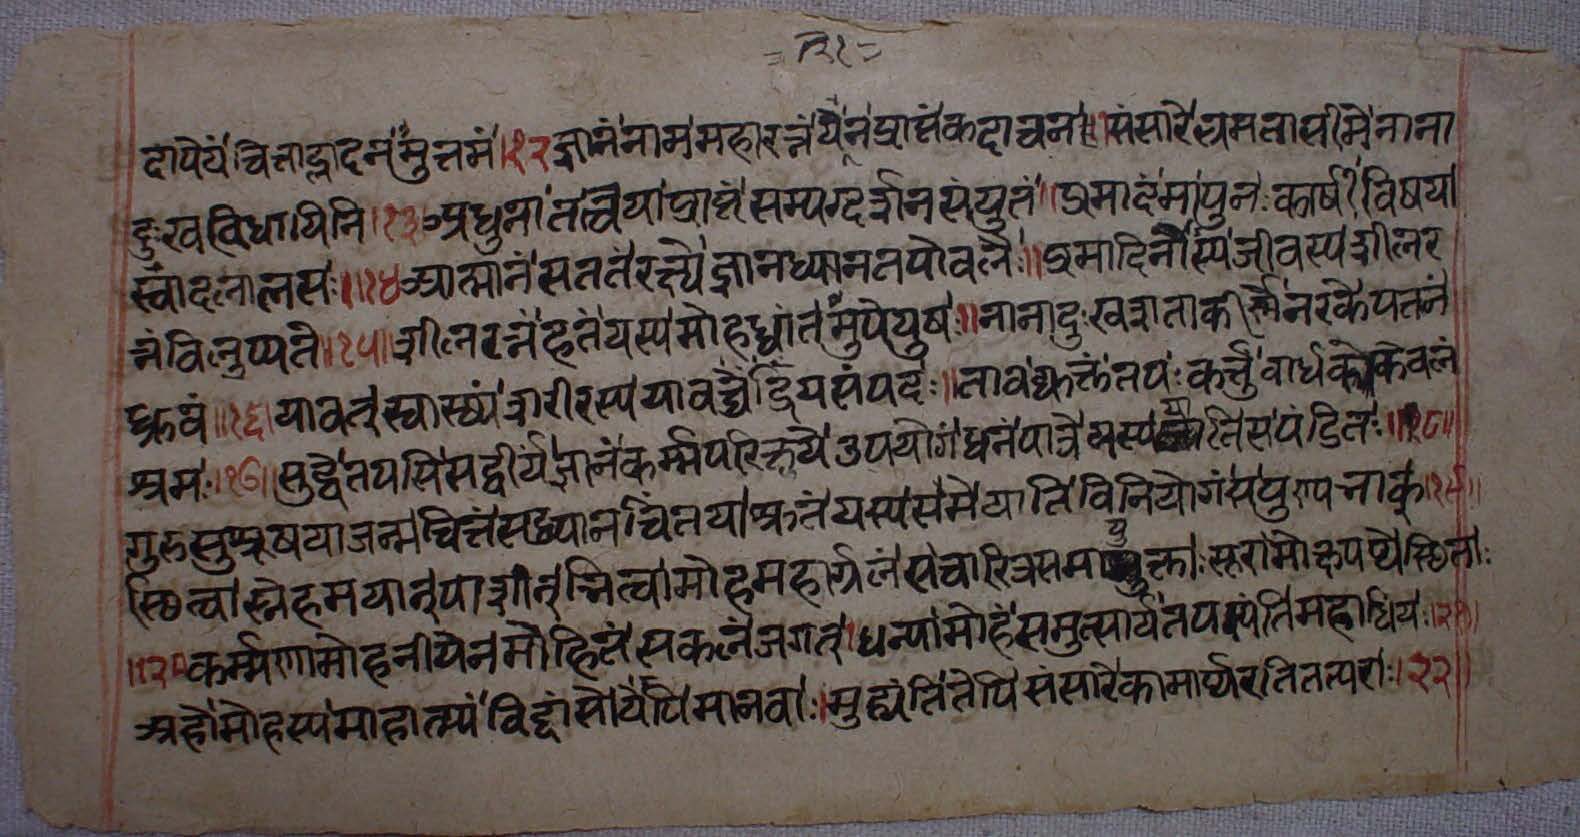 =१२१=
दापेयं चित्ताह्लादनमुत्तमं।१२ज्ञानं नाम महारत्नं येन प्राप्तं कदाचन।संसारे भ्रमता भीमे नाना
दुःखविधायिनि।१३अधुना तत्वया प्राप्तं सम्यग्दर्शनसंयुतं॥प्रमादं मा पुनः कार्षी विषया
स्वादलालसः॥१४आत्मानं सततं रक्ष्ये ज्ञानध्यानतपोवलैः॥प्रमादिनोस्य जीवस्य शीलर
त्नं विलुप्यते॥१५॥शीलरत्नं हतं यस्य मोहध्वांतमुपेयुषः॥नानादुःखशताकीर्णे नरके पतनं
ध्रुवं॥१६।यावत् स्वास्थ्यं शरीरस्य यावच्चेंद्रियसंपदः॥तावद्युक्तं तपः कर्त्तुं वार्धक्ये केवलं
श्रमः।१७।सुद्धे तपसि सद्वीर्यं ज्ञानं कर्म्मपरिक्षये उपयोगं धनं पात्रे यस्य याति स पंडितः॥१८॥
गुरुसुश्रूषया जन्म चित्तं सद्ध्यानचिंतया श्रुतं यस्य समे याति विनियोगं स पुण्यभाक्।१९॥
स्छित्वा स्नेहमयान् पाशान् भित्वा मोहमहार्गलं सचारित्रसमायुक्ताः सूरा मोक्षपथे स्छिताः
॥२०कर्म्मणा मोहनीयेन मोहितं सकलं जगत्।धन्या मोहं समुत्सार्य तपस्यंति महाधियः।२१।
अहो मोहस्य माहात्म्यं विद्वांसो येपि मानवाः।मुह्यंति तेपि संसारे कामार्थरतितत्पराः।२२॥